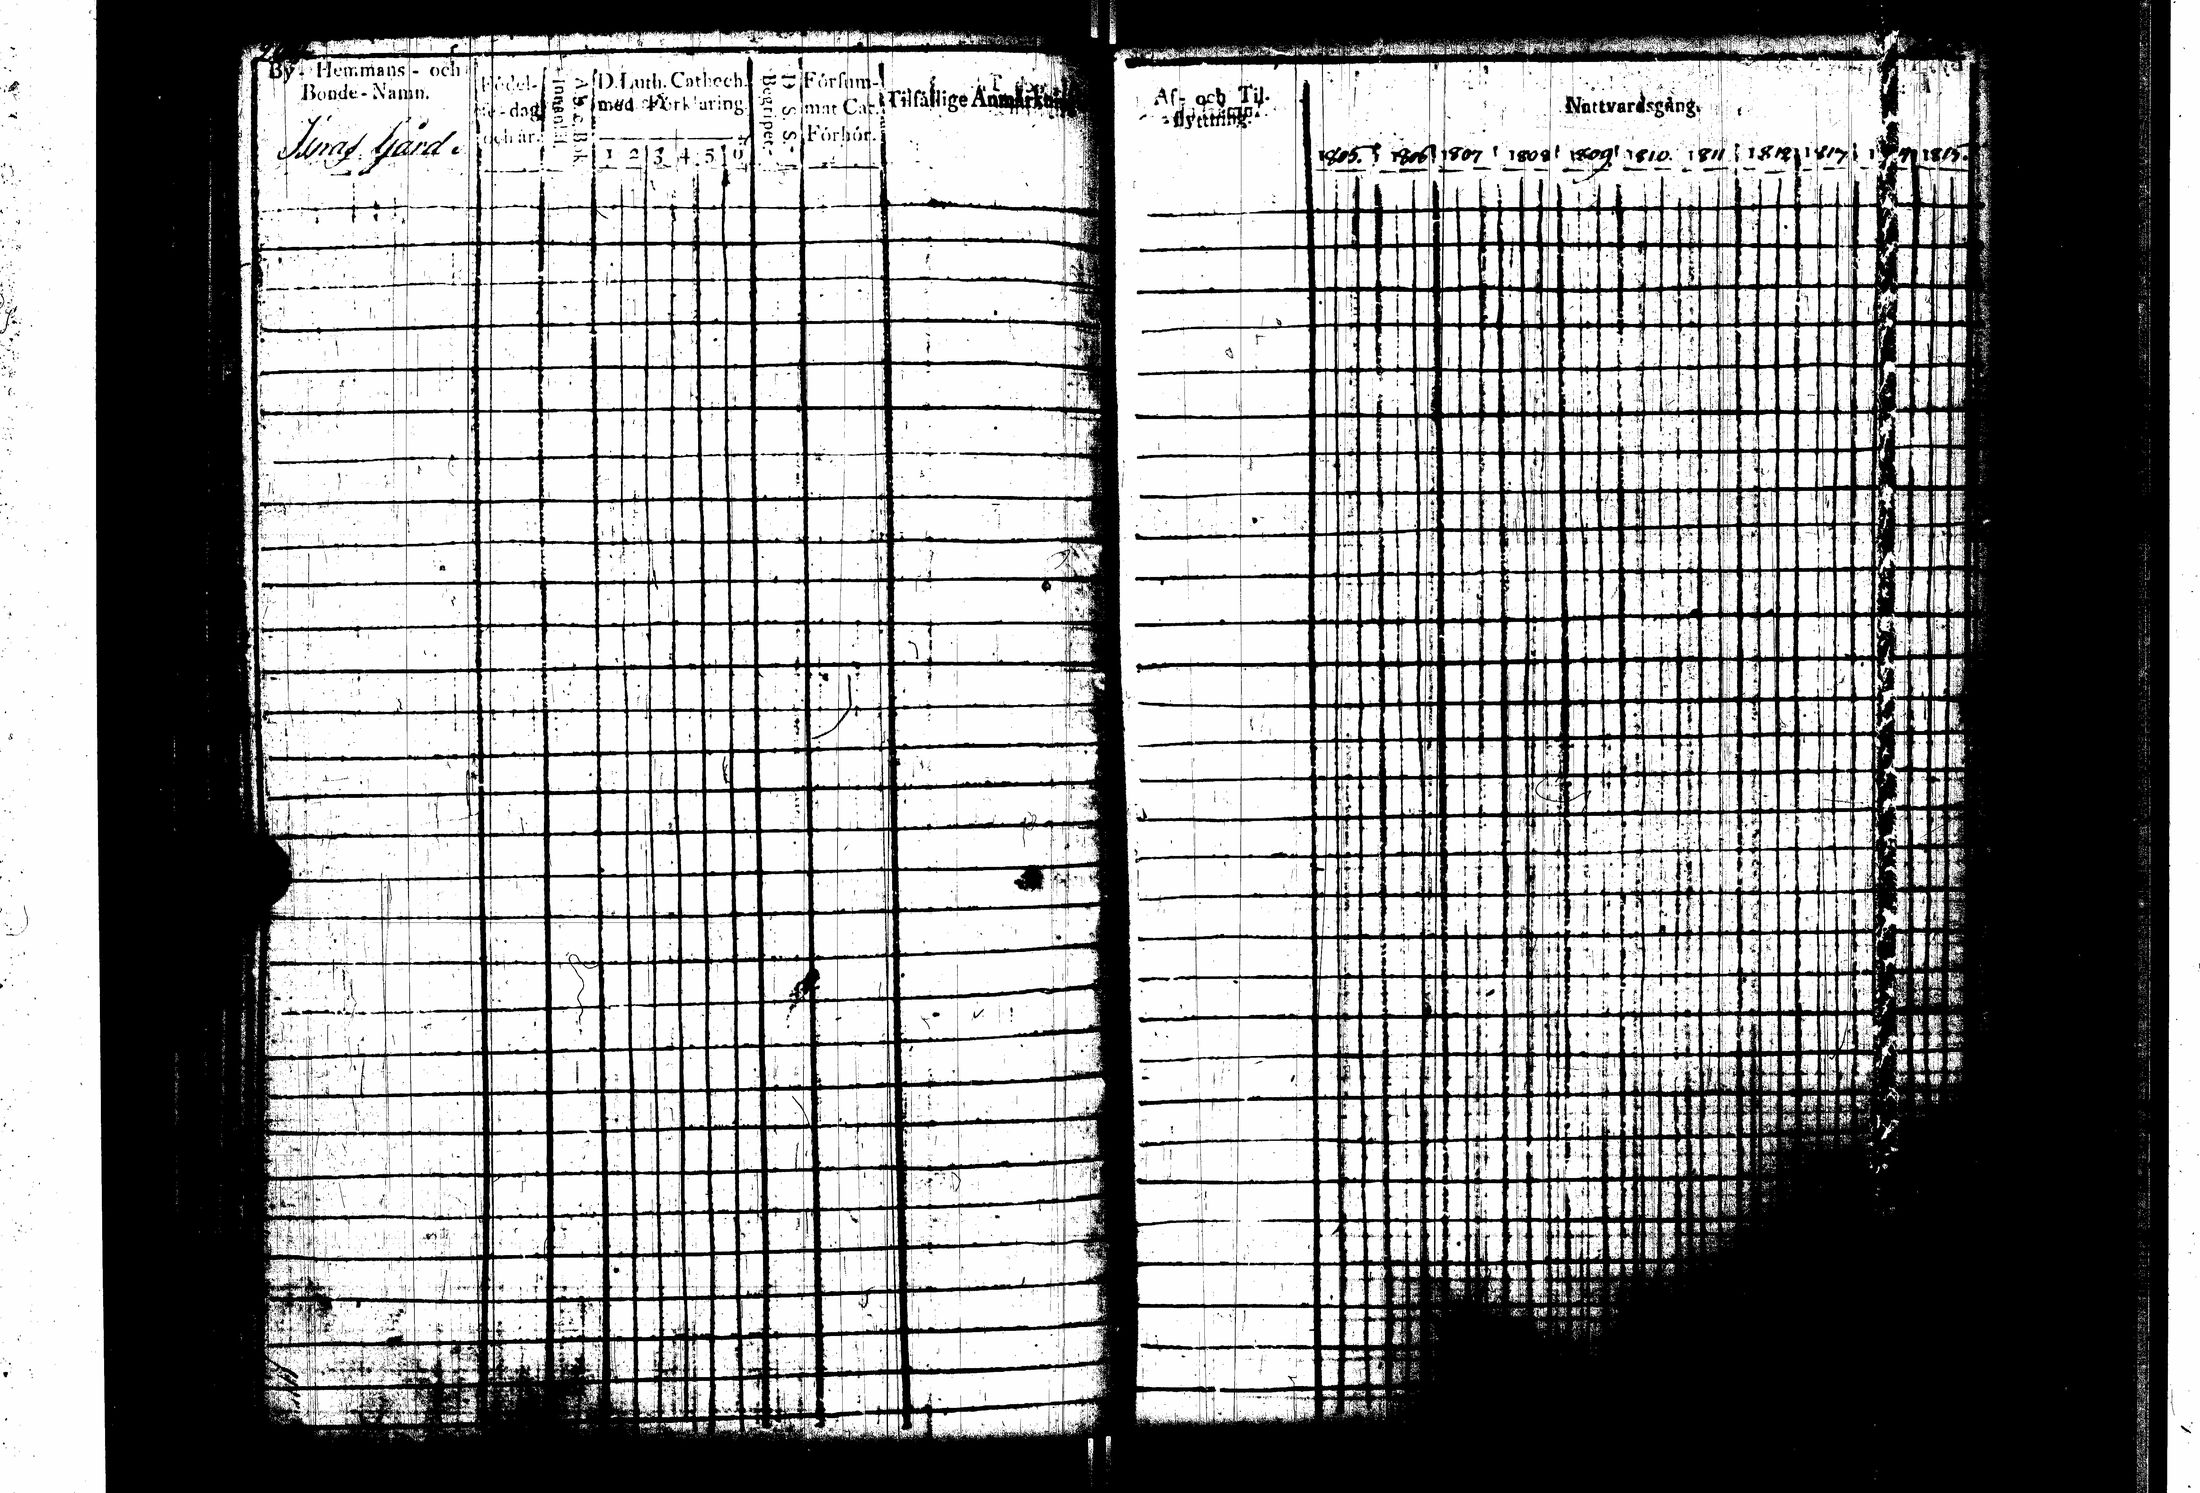 By - Hemmans - och
Bonde - Namn.
Gård.
Födel-
se - dag
och år.
A. b. c Bok
Innantil
D. Luth. Cathech.
med Förklaring
1 2 3 4 5 6
D. S. S.
Begriper
Försum-
mat Cat.
Förhör.
Tilfällige Anmärkn
Af - och Til-
flyttning.
Nattvardsgång.
1805. 1806 1807 1808 1809 1810. 1811 1812 1817 1815.